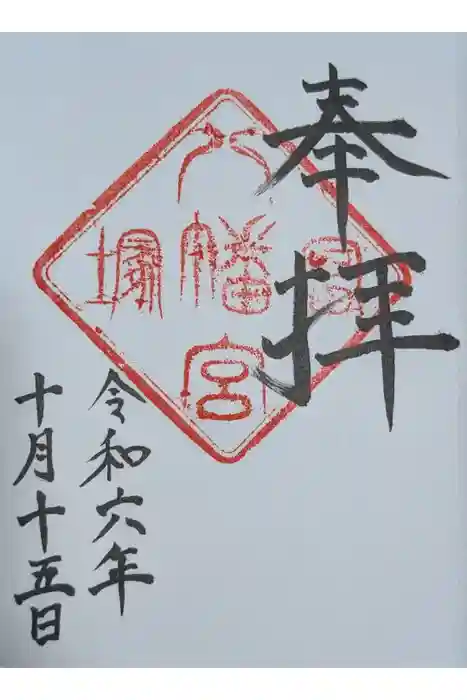 奉拝
塚
八幡宮
令和六年
十月十五日